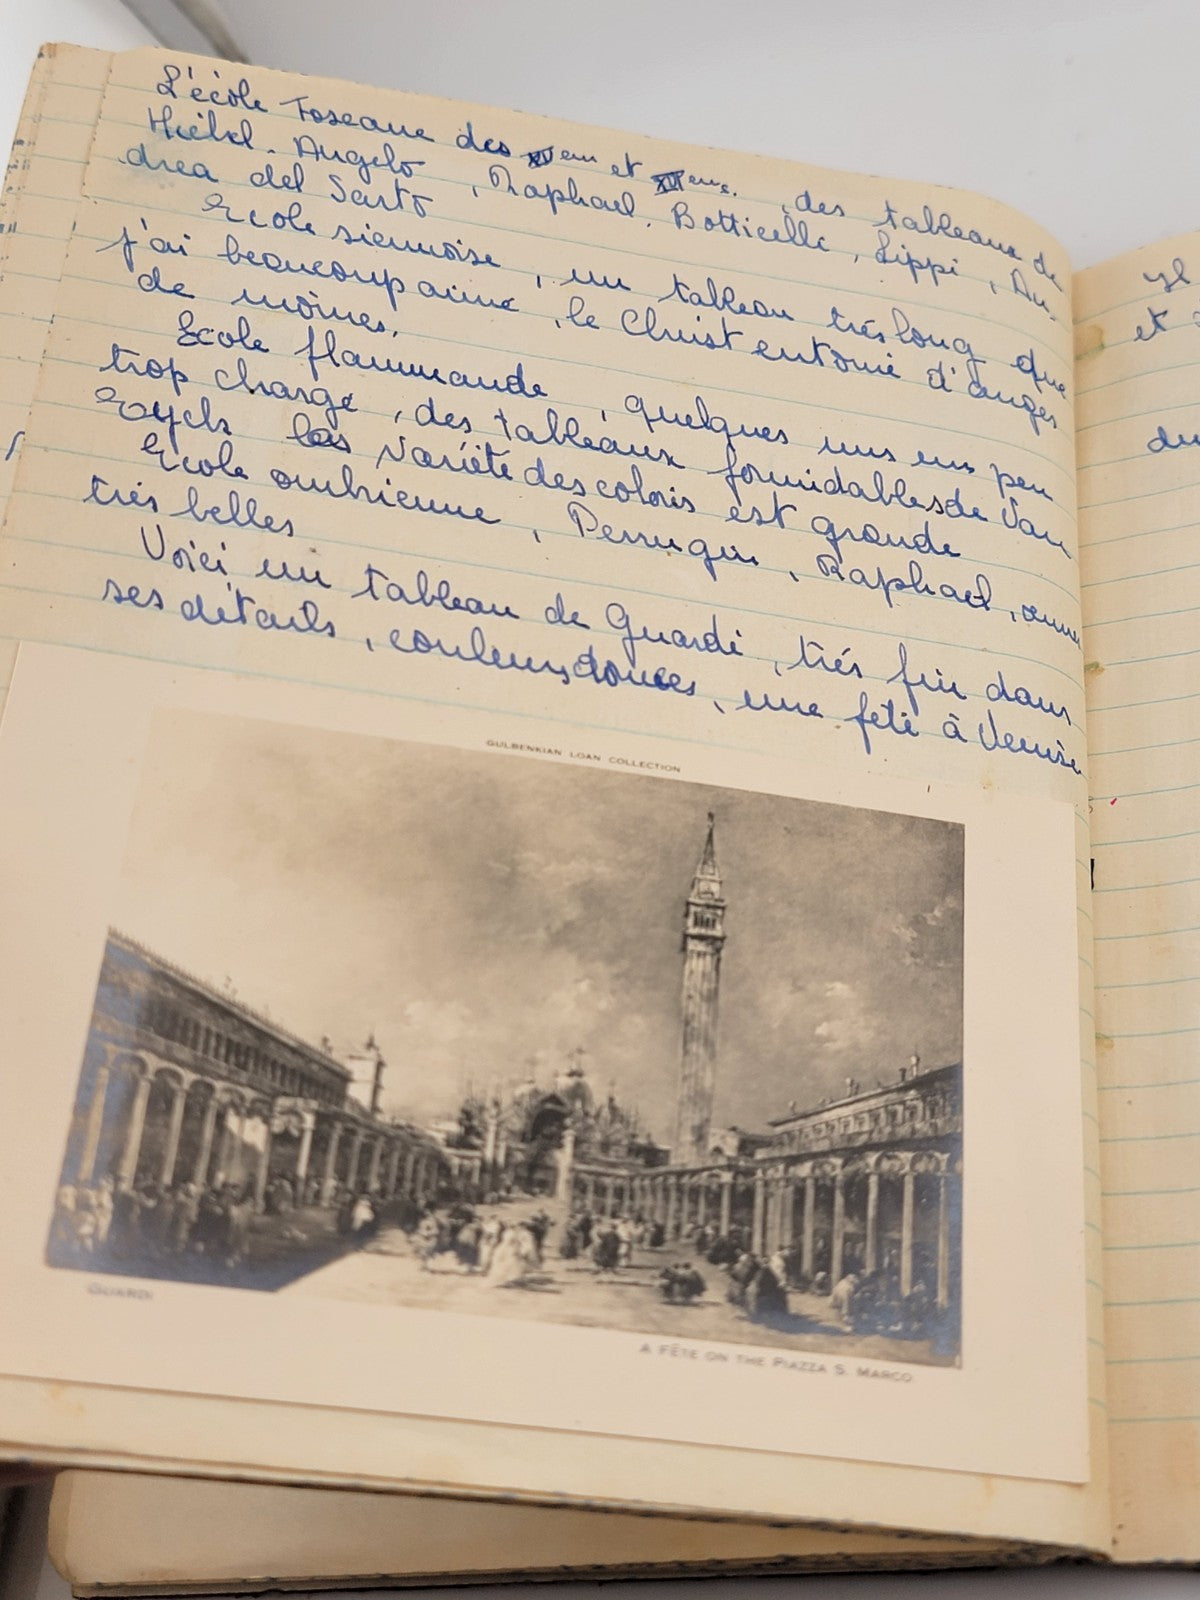 L'école Toscane des XVem et XVIeme, des tableaux de
Michel. Angelo, Raphael. Botticelli, Lippi, An-
drea del Sarto
Ecole siennoise, un tableau très long que
j'ai beaucoup aimé, le Christ entouré d'anges
de moines.
Ecole flammande, quelques uns un peu
trop chargé, des tableaux formidables de Van
Eych la variété des coloris est grande
Ecole ombrienne, Perrugin, Raphael,
très belles
Voici un tableau de Guardi, très fin dans
ses détails, couleurs douces, une fête à Venise
GULBENKIAN LOAN COLLECTION
GUARDI
A FÊTE ON THE PIAZZA S. MARCO
et
du